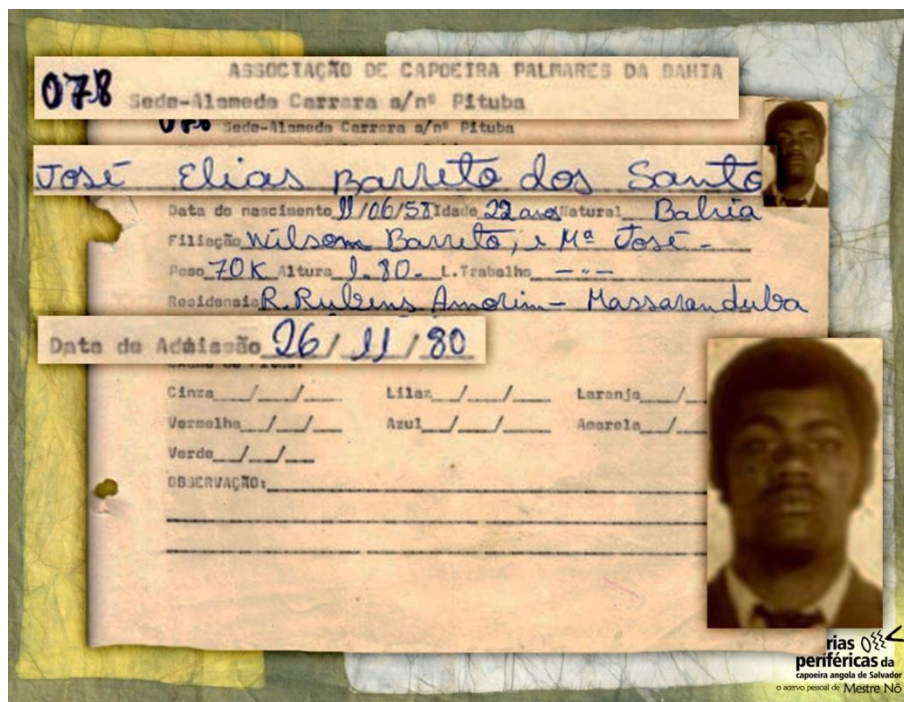 078 ASSOCIAÇÃO DE CAPOEIRA PALMARES DA BAHIA
Sede-Alameda Carrara s/nº Pituba
078 Sede-Alameda Carrara s/nº Pituba
José Elias Barreto dos Santo
Data de nascimento 11/06/58 Idade 22 anos Natural Bahia
Filiação Wilsom Barreto, e Mª José -
Peso 70K Altura 1.80- L.Trabalho -"-
Residensia R. Rubens Amorim - Massaranduba
Data de Admissão 26/11/80
Cinza__/__/__ Lilaz__/__/__ Laranja__/__
Vermelha__/__/__ Azul__/__/__ Amarela__/__
Verde__/__/__
OBSERVAÇÃO:
rias
periféricas da
capoeira angola de Salvador
o acervo pessoal de Mestre Nô